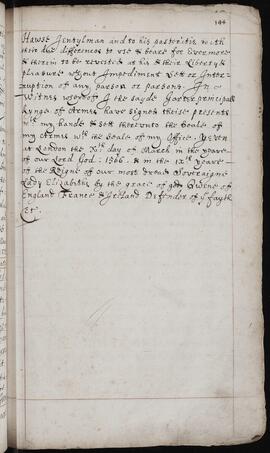 144
Hawse Gentylman and to his posteritie with
their due differences to use & beare for Evermore
& therein to be revested at his & their Liberty &
pleasure wthout Impediment Lett or Inter=
ruption of any parson or parsons. In
Witnes whereof I the sayde Garter principall
Kynge of Armes have signed theise presents
wth my hande & sett thereunto the Seale of
my Armes wth the Seale of my Office. Yeven
at London the Xth day of March in the yeare
of our Lord God: 1566. & in the ixth yeare
of the Reigne of our most dread Soveraigne
Lady Elizabethe by the grace of god Queene of
England France & Ireland Defender of ye fayth
&c.